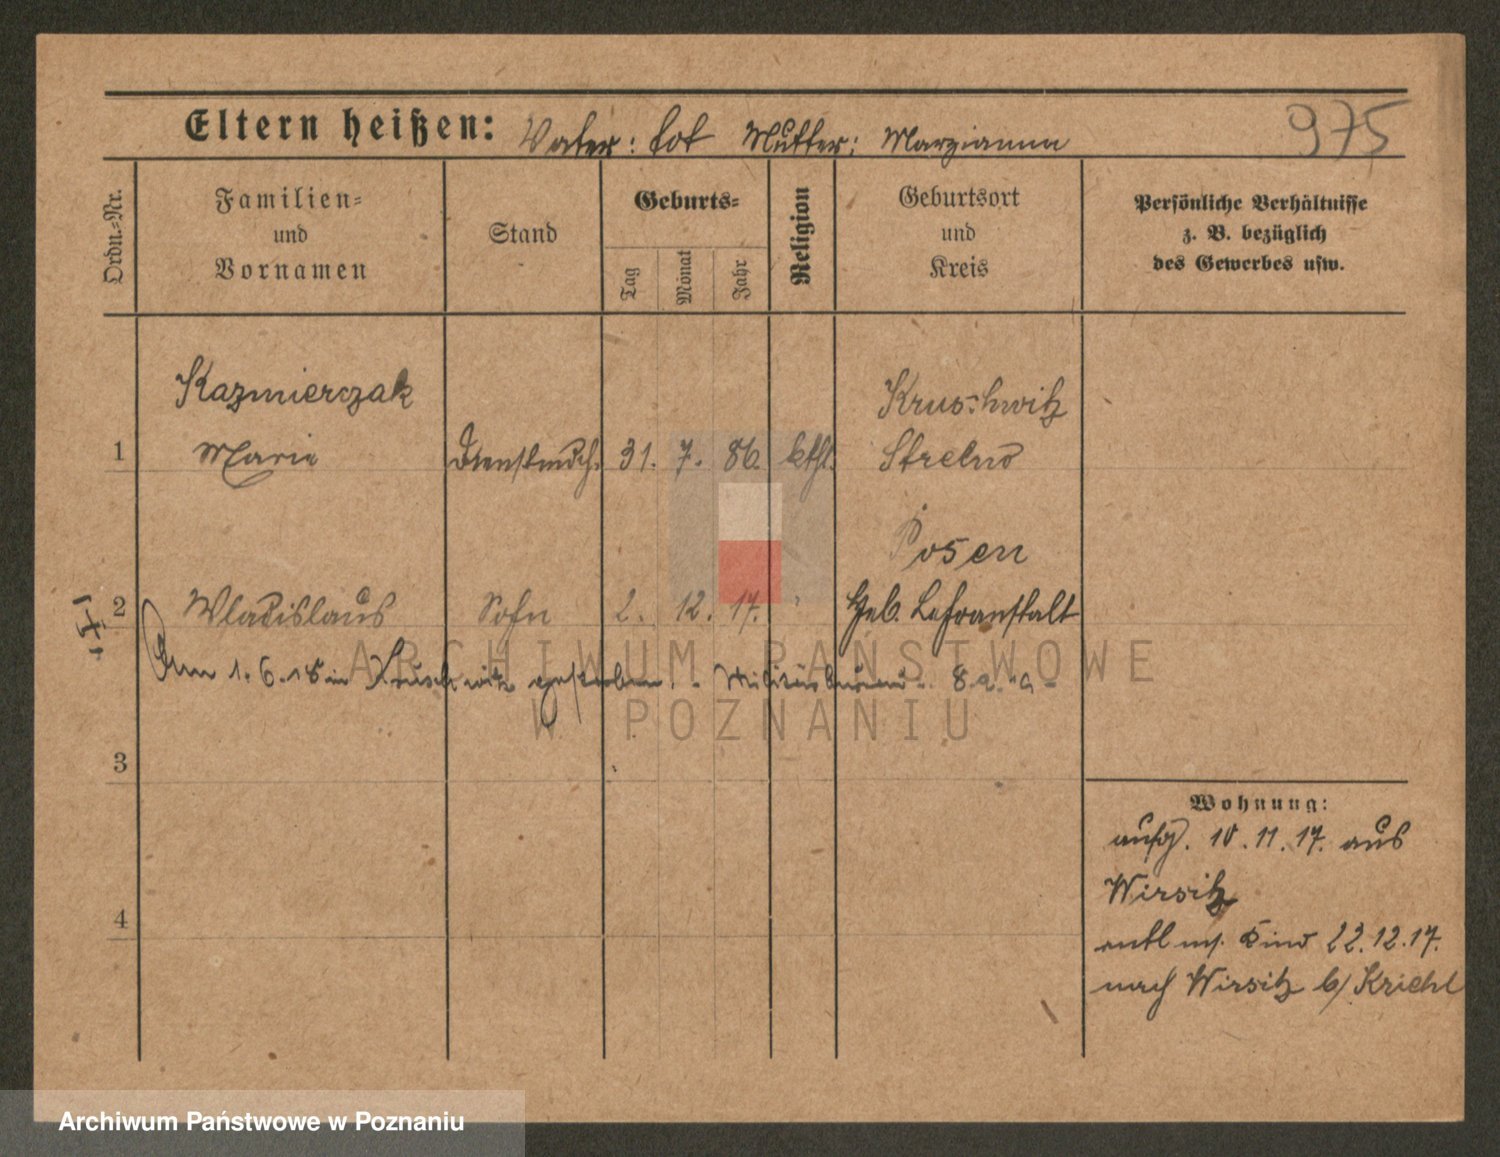 Eltern heißen: Vater: tot Mutter: Marzianna
975
Ordn.-Nr.
Familien-
und
Vornamen
Stand
Geburts-
Tag
Monat
Jahr
Religion
Geburtsort
und
Kreis
Persönliche Verhältnisse
z. B. bezüglich
des Gewerbes usw.
Kazmierczak
Kruschwitz
1 Marie Dienstmdch. 31. 7. 86. kthl. Strelno
Posen
2 Wladislaus Sohn 2. 12. 17. Heb. Lehranstalt
Am 1.6.18 in Kruschwitz gestorben. -
3
4
Wohnung:
aufg. 10.11.17. aus
Wirsitz
entl m. Kind 22.12.17.
nach Wirsitz b/ Kriehl
ARCHIWUM PAŃSTWOWE
W POZNANIU
Archiwum Państwowe w Poznaniu